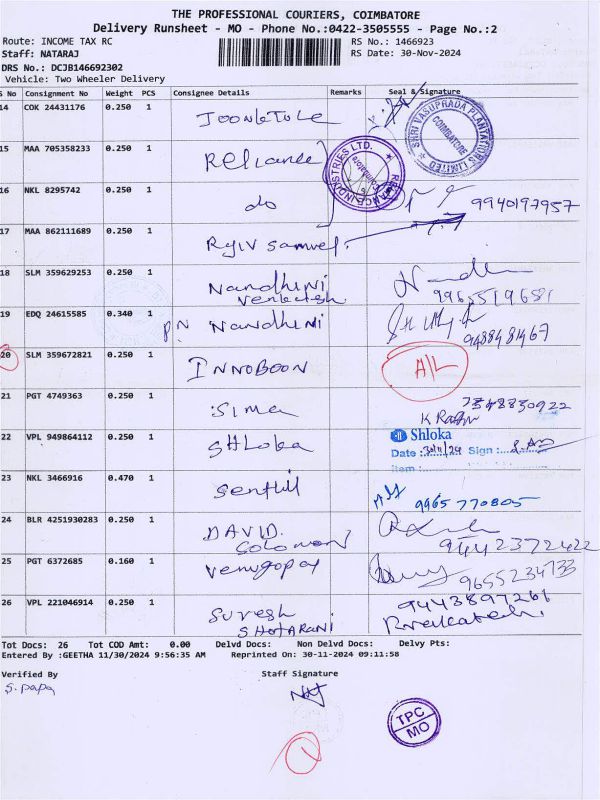 THE PROFESSIONAL COURIERS, COIMBATORE
Delivery Runsheet - MO - Phone No.:0422-3505555 - Page No.:2
Route: INCOME TAX RC RS No.: 1466923
Staff: NATARAJ RS Date: 30-Nov-2024
DRS No.: DCJB146692302
Vehicle: Two Wheeler Delivery
S No Consignment No Weight PCS Consignee Details Remarks Seal & Signature
14 COK 24431176 0.250 1
SHRI VASUPRADA PLANTATIONS LIMITED
COIMBATORE
15 MAA 705358233 0.250 1 Reliance
RELIANCE INDUSTRIES LTD.
16 NKL 8295742 0.250 1 do 9940197957
17 MAA 862111689 0.250 1 Rajiv Samuel
18 SLM 359629253 0.250 1 Nandhini
Venkatesh 9965519681
19 EDQ 24615585 0.340 1 P.N Nandhini 9488481467
20 SLM 359672821 0.250 1 INNOBOON A/L
21 PGT 4749363 0.250 1 Sima 7348830922
22 VPL 949864112 0.250 1 Shloka
Shloka
Date : 30/11/24 Sign :
Item :
23 NKL 3466916 0.470 1 Senthil 9965 770805
24 BLR 4251930283 0.250 1 DAVID
SOLOMON 9442372422
25 PGT 6372685 0.160 1 Venugopal 9655234733
26 VPL 221046914 0.250 1 Suresh 9443897261
SHOTARANI
Tot Docs: 26 Tot COD Amt: 0.00 Delvd Docs: Non Delvd Docs: Delvy Pts:
Entered By :GEETHA 11/30/2024 9:56:35 AM Reprinted On: 30-11-2024 09:11:58
Verified By Staff Signature
S. papa
TPC
MO